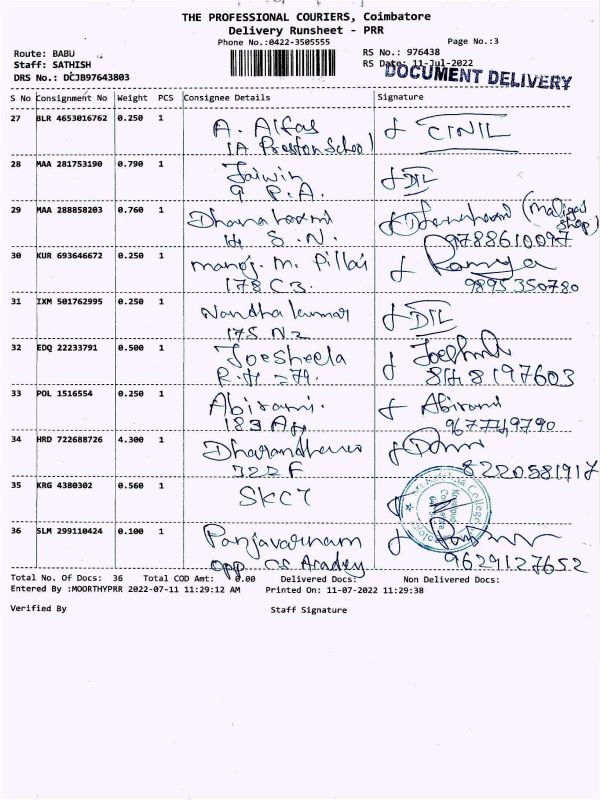 THE PROFESSIONAL COURIERS, Coimbatore
Delivery Runsheet - PRR
Phone No.:0422-3505555
Page No.:3
Route: BABU
RS No.: 976438
Staff: SATHISH
RS Date: 11-Jul-2022
DOCUMENT DELIVERY
DRS No.: DCJB97643803
S No Consignment No Weight PCS Consignee Details Signature
27 BLR 4653016762 0.250 1 A. Alfas
1A Preston School
28 MAA 281753190 0.790 1 Jaiwin DIL
9 P.A.
29 MAA 288858203 0.760 1 Dhanalaxmi (Maligai Shop)
14 S.N. 9788610097
30 KUR 693646672 0.250 1 Manoj. M. Pillai Ramya
178 C3. 9895350780
31 IXM 501762995 0.250 1 Nandha kumar DIL
175 N2
32 EDQ 22233791 0.500 1 Joesheela
8148197603
33 POL 1516554 0.250 1 Abirami. Abirami
183 A 9677749790
34 HRD 722688726 4.300 1
722 F 8220581917
35 KRG 4380302 0.560 1 SKCT
Sri Krishna College
36 SLM 299110424 0.100 1 Panjavarnam
opp. CS Academy 9629127652
Total No. Of Docs: 36 Total COD Amt: 0.00 Delivered Docs: Non Delivered Docs:
Entered By :MOORTHYPRR 2022-07-11 11:29:12 AM Printed On: 11-07-2022 11:29:38
Verified By Staff Signature